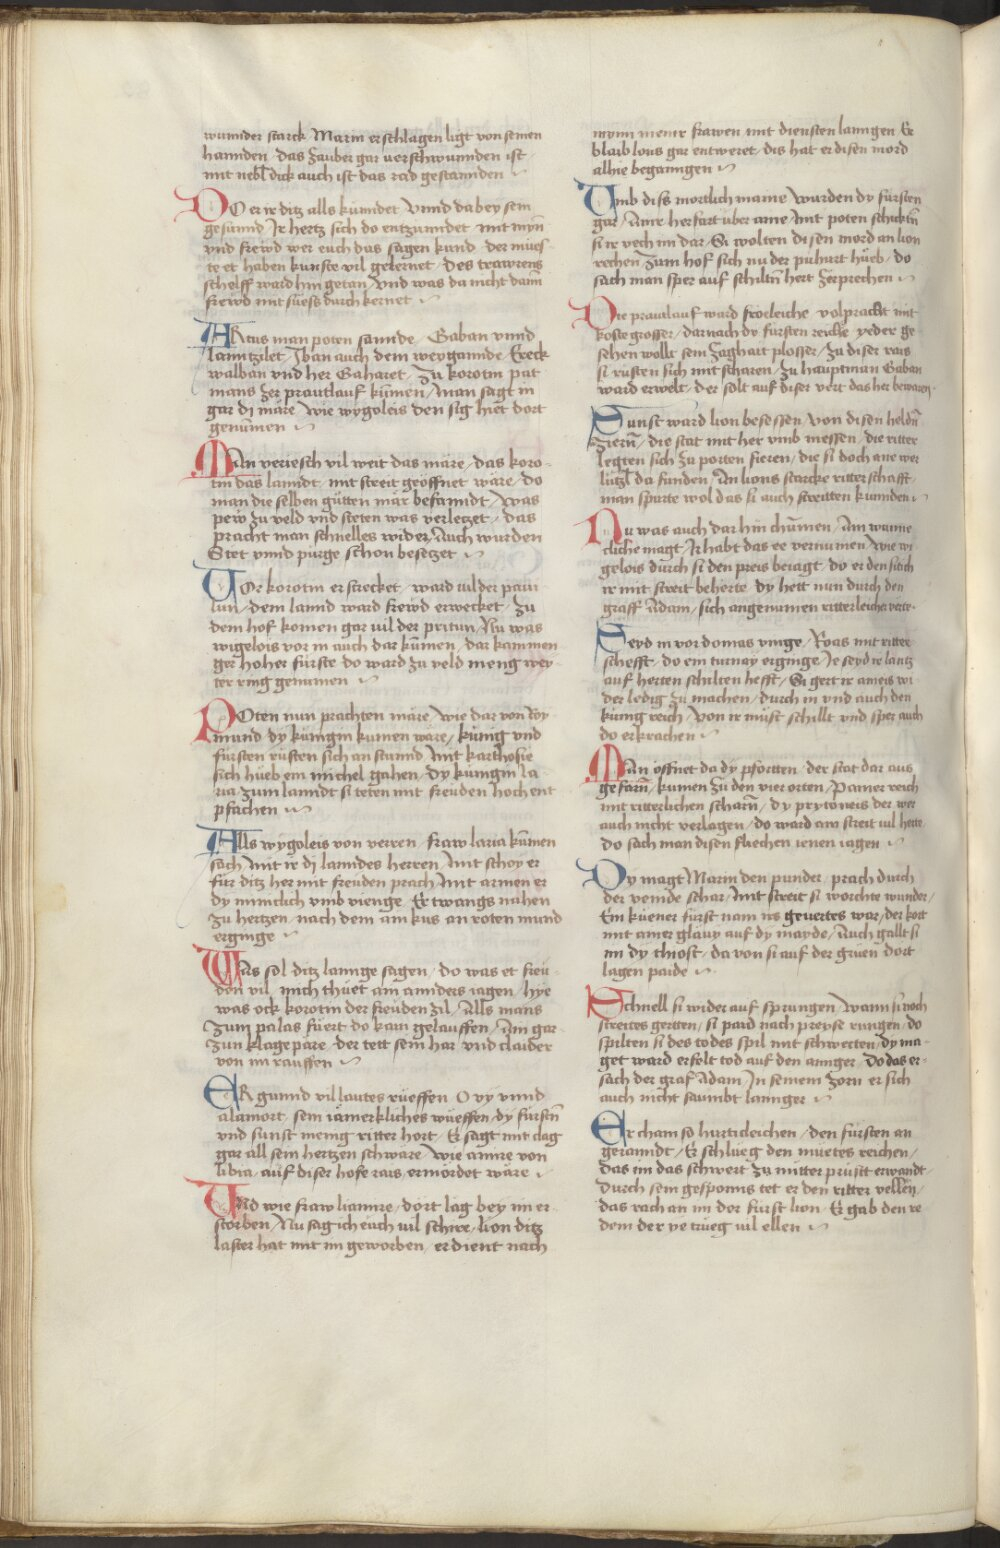 wunnder starck / Marin erschlagen ligt von seinen
hannden / das zauber gar verschwunnden ist
mit nebl dick auch ist das rad gestannden
DO er ir ditz alls kundet / Vnnd da bey sein
gesunnd / Ir hertz sich do entzunndet / mit myn
vnd frewd wer euch das sagen kund / der mues
te et haben kunste vil gelernet / des trawrens
schelff ward hin getan / vnd was da nicht dann
frewd mit suess durch kernet
ARtus man poten sannde / Gaban vnnd
lanntzilet / Iban auch dem weygannde / Ereck
walban vnd her Gaharet / Zu korotin pat
mans zer prautlauf kumen / man sagt in
gar di märe / wie wygoleis den sig hiet dort
genumen
MAn veriesch vil weit das märe / das koro-
tin das lanndt / mit streit geöffnet wäre / do
man die selben gütten mär befanndt / Was
pew zu veld vnd steten was verletzet / das
pracht man schnelles wider / Auch wurden
Stet vnnd purge schon besetzet
VOr korotin er strecket / ward vil der pavi
lun / dem lannd ward frewd erwecket / zu
dem hof komen gar vil der pritun / Nu was
wigelois vor in auch dar kumen / dar kamen
ger hoher fürste / do ward zu veld meng wey
ter ring genumen
POten nun prachten märe / wie dar von Roy
mund / dy kunigin kumen wäre / kunig vnd
fürsten rüsten sich an stunnd / Mit karthosie
sich hüeb ein michel gahen / Dy kunigin la
ria zum lanndt si teten mit freuden hoch ent
pfachen
Alls wygoleis von verren / fraw laria kumen
sach / Mit ir di lanndes herren / Mit schoy er
für ditz her mit freuden prach / Mit armen er
dy minnclich vmb vienge / Er twangs nahen
zu hertzen / nach dem ain kus an roten mund
erginge
WAs sol ditz lannge sagen / do was et freu
den vil / mich thuet ain annders iagen / hye
was ock korotin der freuden zil / Alls mans
zum palas fuert do kam gelauffen / Ain gar
zun klage päre / der tett sein har vnd claider
von im rauffen
ER gunnd vil lautes rueffen / O vy vnnd
alamort / sein iamerkliches wueffen / dy fürstn̄
vnd sunst menig ritter hort / Er sagt mit clag
gar all sein hertzen schwäre / wie amire von
libia / auf diser hofe rais / ermördet wäre
VNd wie fraw lianire / dort lag bey im er
storben / Nu sag ich euch vil schire / lion ditz
laster hat mit im geworben / er dient nach
mynn meiner frawen / mit diensten lanngen / Er
blaib lons gar entweret / dis hat er disen mord
alhie beganngen
Vmb diss mortlich maine / Wurden dy fürsten
gar / Ainr herfart über aine / Mit poten schicktn̄
si ir vech im dar / Si wolten disen mord an lion
rechen / Zum hof sich nu der puhurt hueb / do
sach man sper auf schiltn̄ hert zerprechen
Die prautlauf ward froeleiche / volpracht mit
koste grosser / darnach dy fürsten reiche / yeder ge
sehen wollt sein zaghait plosser / Zu diser rais
si rüsten sich mit scharen / Zu hauptman Gaban
ward erwelt / der solt auf diser vert das her bewaren
Sunst ward lion besessen / von disen heldn̄
zieren / die stat mit her vmb messen / die ritter
legten sich zu porten fieren / die si doch ane wer
lützl da funden / An lions starcke ritterschafft
man spurte wol das si auch streitten kunnden
Nu was auch dar hin chumen / Ain wunne
cliche magt / Ir habt das ee vernumen / wie wi
gelois durch si den preis beiagt / do er den siech
ir mit streit beherte / dy hett nun durch den
graff Adam / sich angenumen ritterleicher verte
Seyd in vor domas vinge / Roas mit ritter
schefft / do ein turnay erginge / Ie seyd ir lantz
auf herten schilten hefft / Si gert ir ameis wi
der ledig zu machen / durch in vnd auch den
kunig reich / Von ir müst schillt vnd sper auch
do erkrachen
MAn öffnet da dy pfortten / der stat dar aus
gefarn̄ / kumen zu den vier orten / Paner reich
mit ritterlichen scharn̄ / dy prytoneis der wer
auch nicht verlagen / do ward ain streit vil herte
do sach man disen fliechen ienen iagen
Dy magt Marin den punder / prach durch
der veinde schar / Mit streit si worchte wunder /
Ein küener fürst nam irs geuertes war / der kort
mit ainer gläuy auf dy mayde / Auch gallt si
im dy thiost / da von si auf der gruen dort
lagen paide
Schnell si wider auf sprungen / Wann si noch
streites gertten / si paid nach preyse rungen / do
spilten si des todes spil mit schwerten / dy ma-
get ward erfolt tod auf den annger / Do das er-
sach der graf Adam / In seinem zorn er sich
auch nicht saumbt lannger
Er cham so hurticleichen / den fürsten an
geranndt / Er schlueg den muetes reichen /
das im das schwert zu mitter prüstt erwandt
durch sein gesponns tet er den ritter vellen /
das rach an im der fürst lion / Er gab den re
dem der ye trueg vil ellen